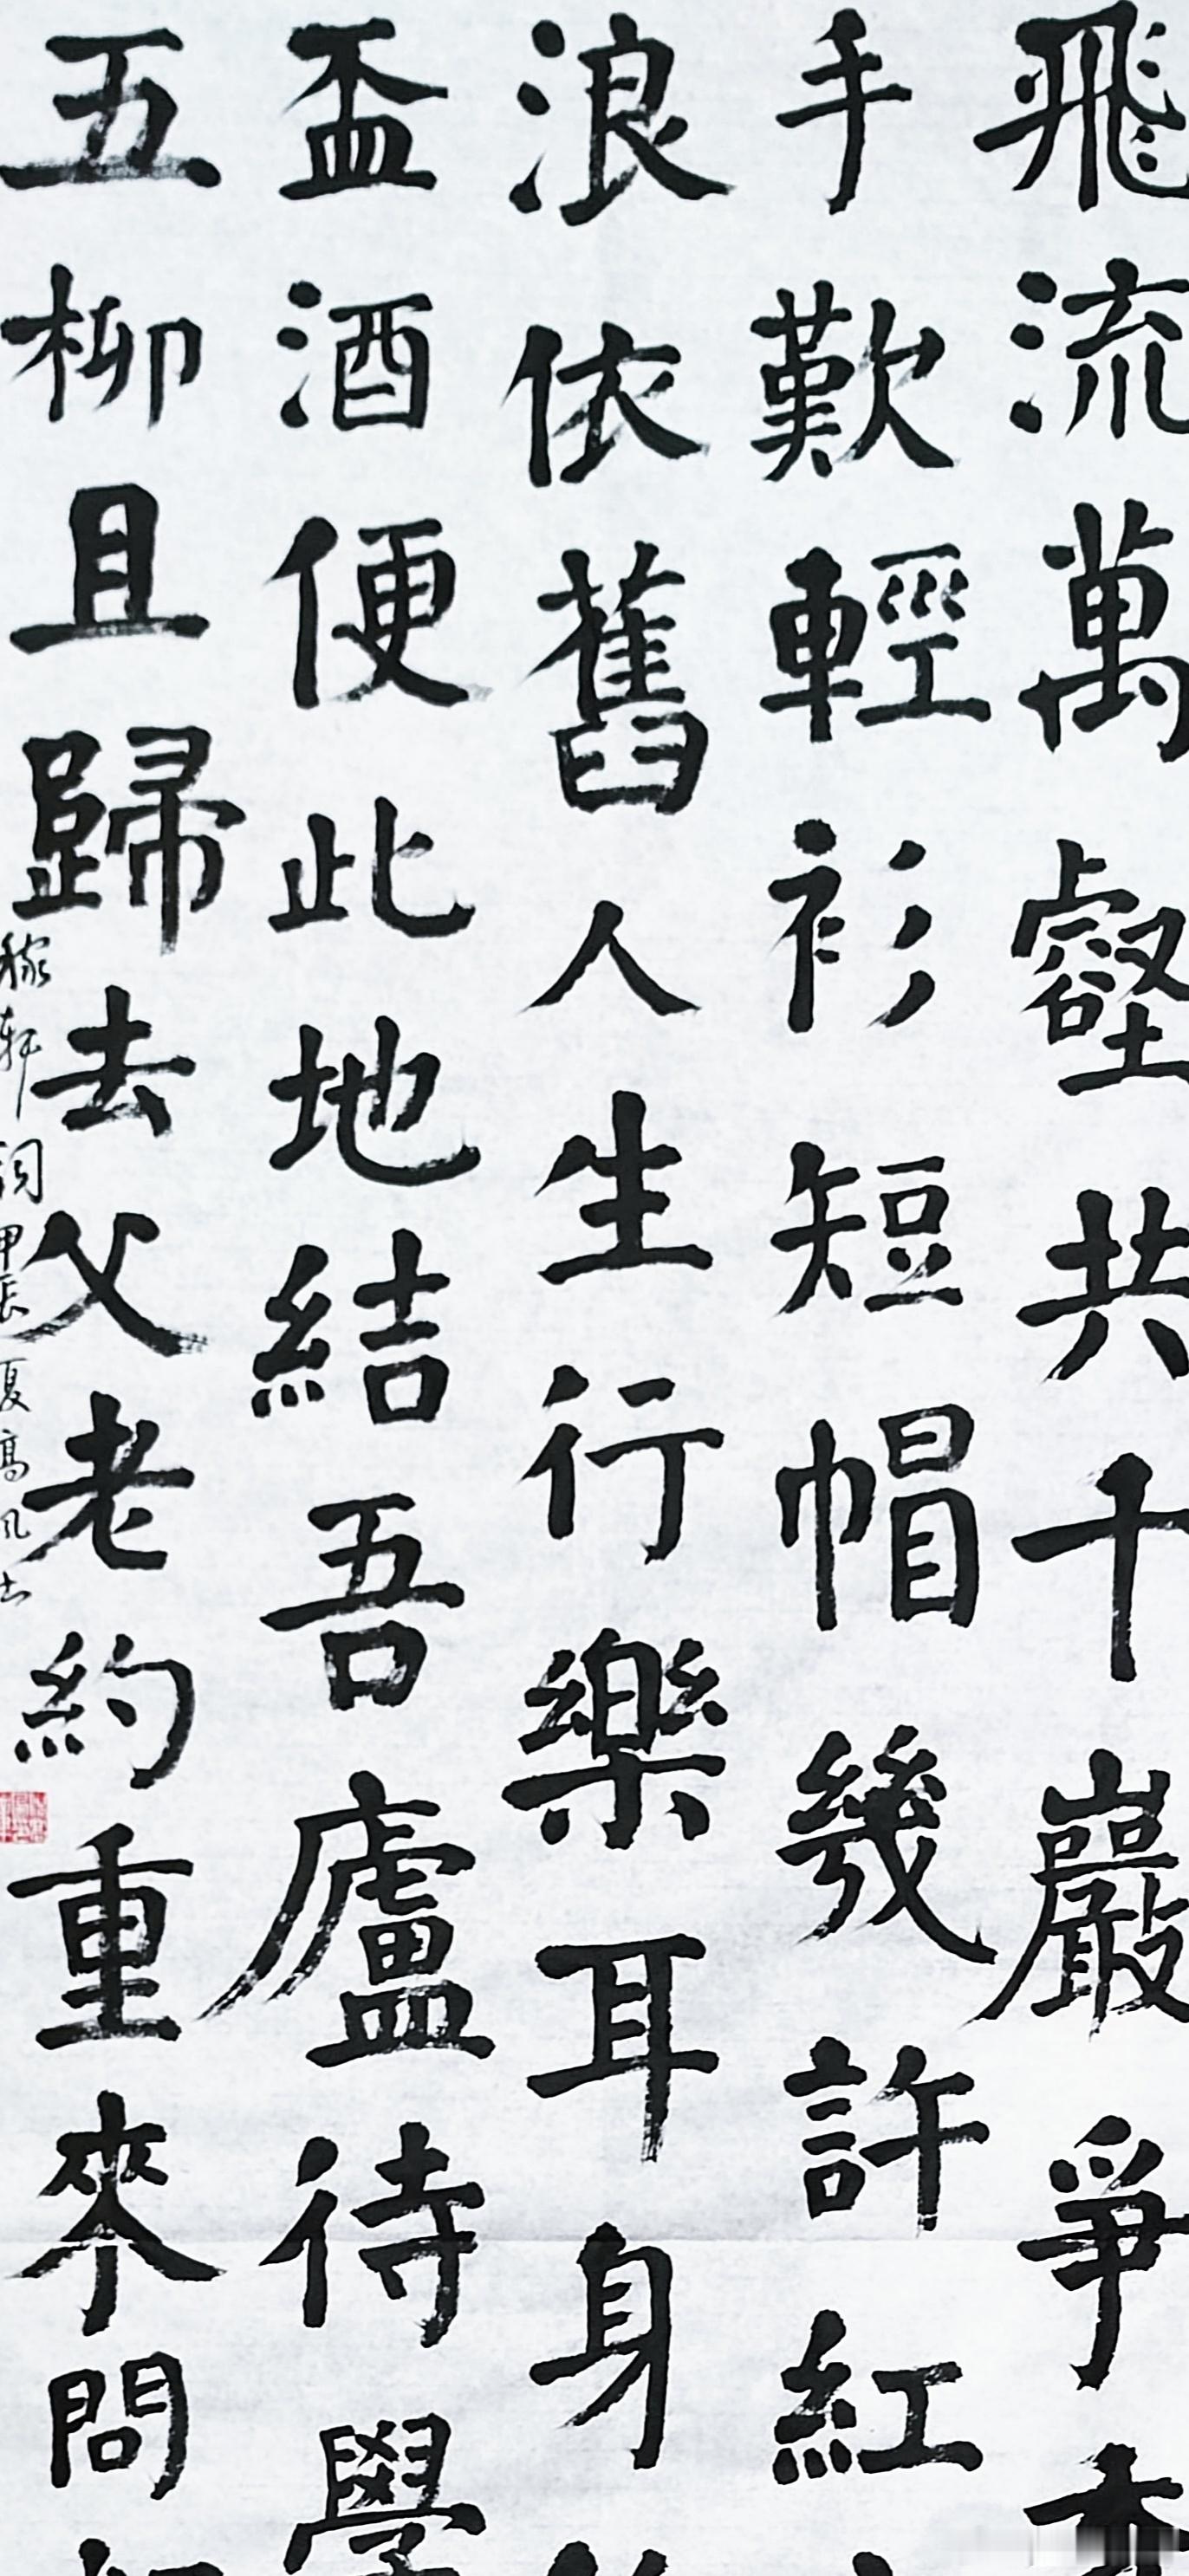 飛流萬壑共千巖爭秀
手歎輕衫短帽幾許紅
浪依舊人生行樂耳身
盃酒便此地結吾廬待學
五柳且歸去父老約重來問
稼軒詞甲辰夏高風士